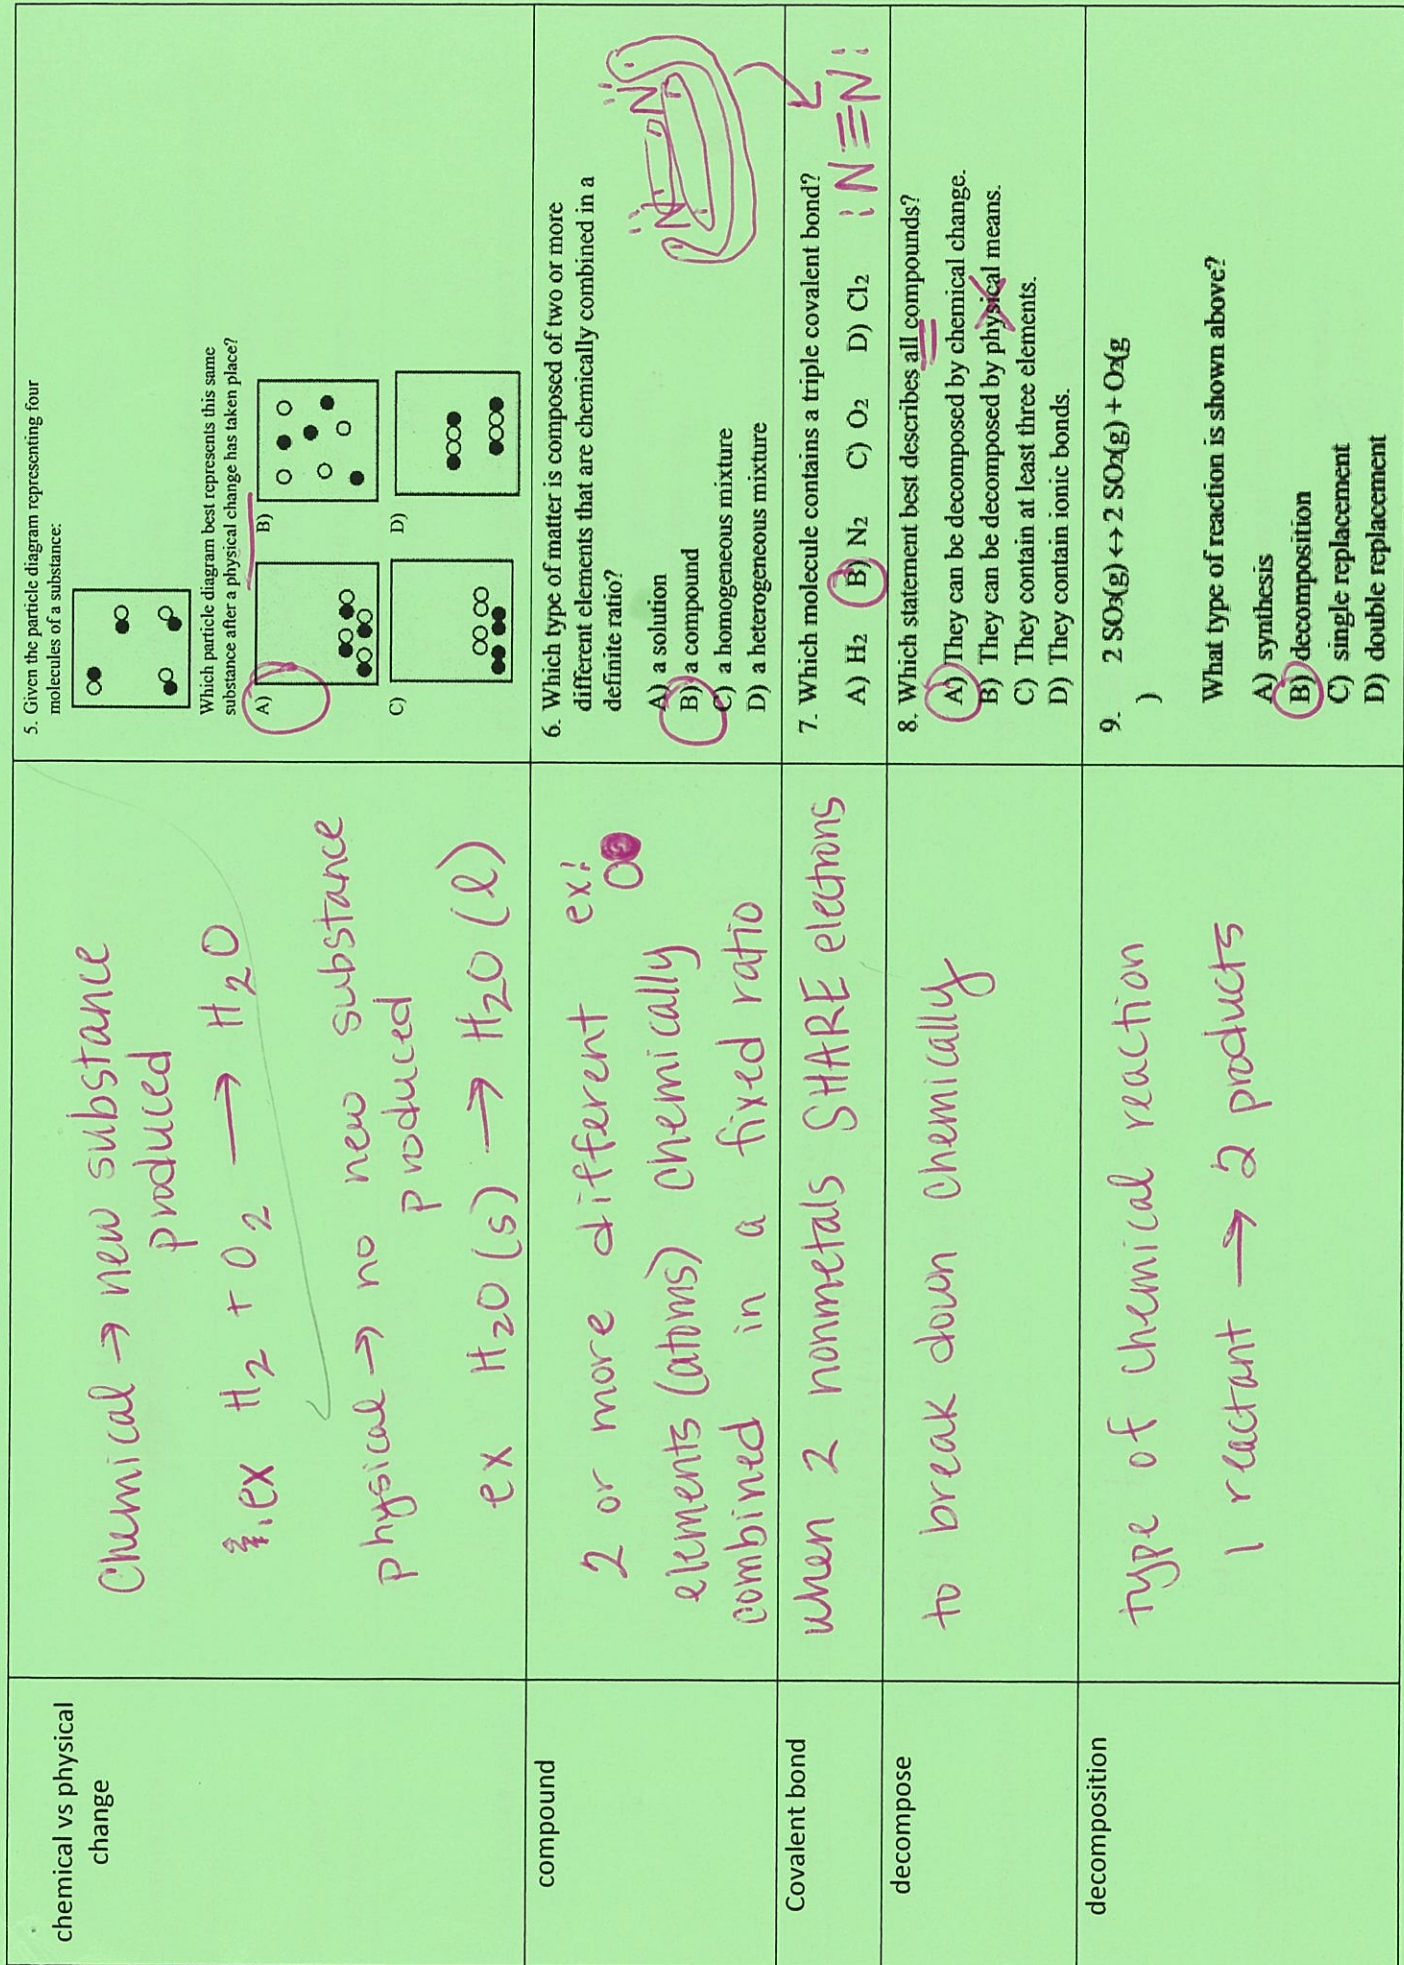 chemical vs physical
change
Chemical → new substance
produced
ex H2 + O2 → H2O
physical → no new substance
produced
ex H2O (s) → H2O (l)
5. Given the particle diagram representing four
molecules of a substance:
Which particle diagram best represents this same
substance after a physical change has taken place?
A)
B)
C)
D)
compound
2 or more different ex:
elements (atoms) chemically
combined in a fixed ratio
6. Which type of matter is composed of two or more
different elements that are chemically combined in a
definite ratio?
A) a solution
B) a compound
C) a homogeneous mixture
D) a heterogeneous mixture
N N
Covalent bond
when 2 nonmetals SHARE electrons
7. Which molecule contains a triple covalent bond?
A) H2 B) N2 C) O2 D) Cl2
:N≡N:
decompose
to break down chemically
8. Which statement best describes all compounds?
A) They can be decomposed by chemical change.
B) They can be decomposed by physical means.
C) They contain at least three elements.
D) They contain ionic bonds.
decomposition
type of chemical reaction
1 reactant → 2 products
9. 2 SO3(g) ↔ 2 SO2(g) + O2(g
)
What type of reaction is shown above?
A) synthesis
B) decomposition
C) single replacement
D) double replacement